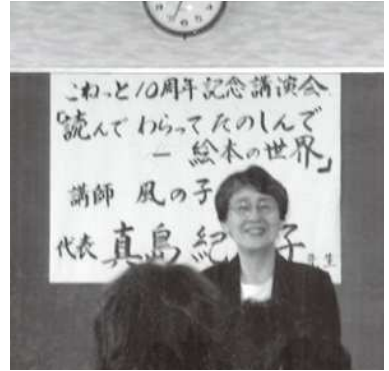 こねっと10周年記念講演会
「読んで わらって たのしんで
― 絵本の世界」
講師 風の子
代表 真島 紀 子 先生